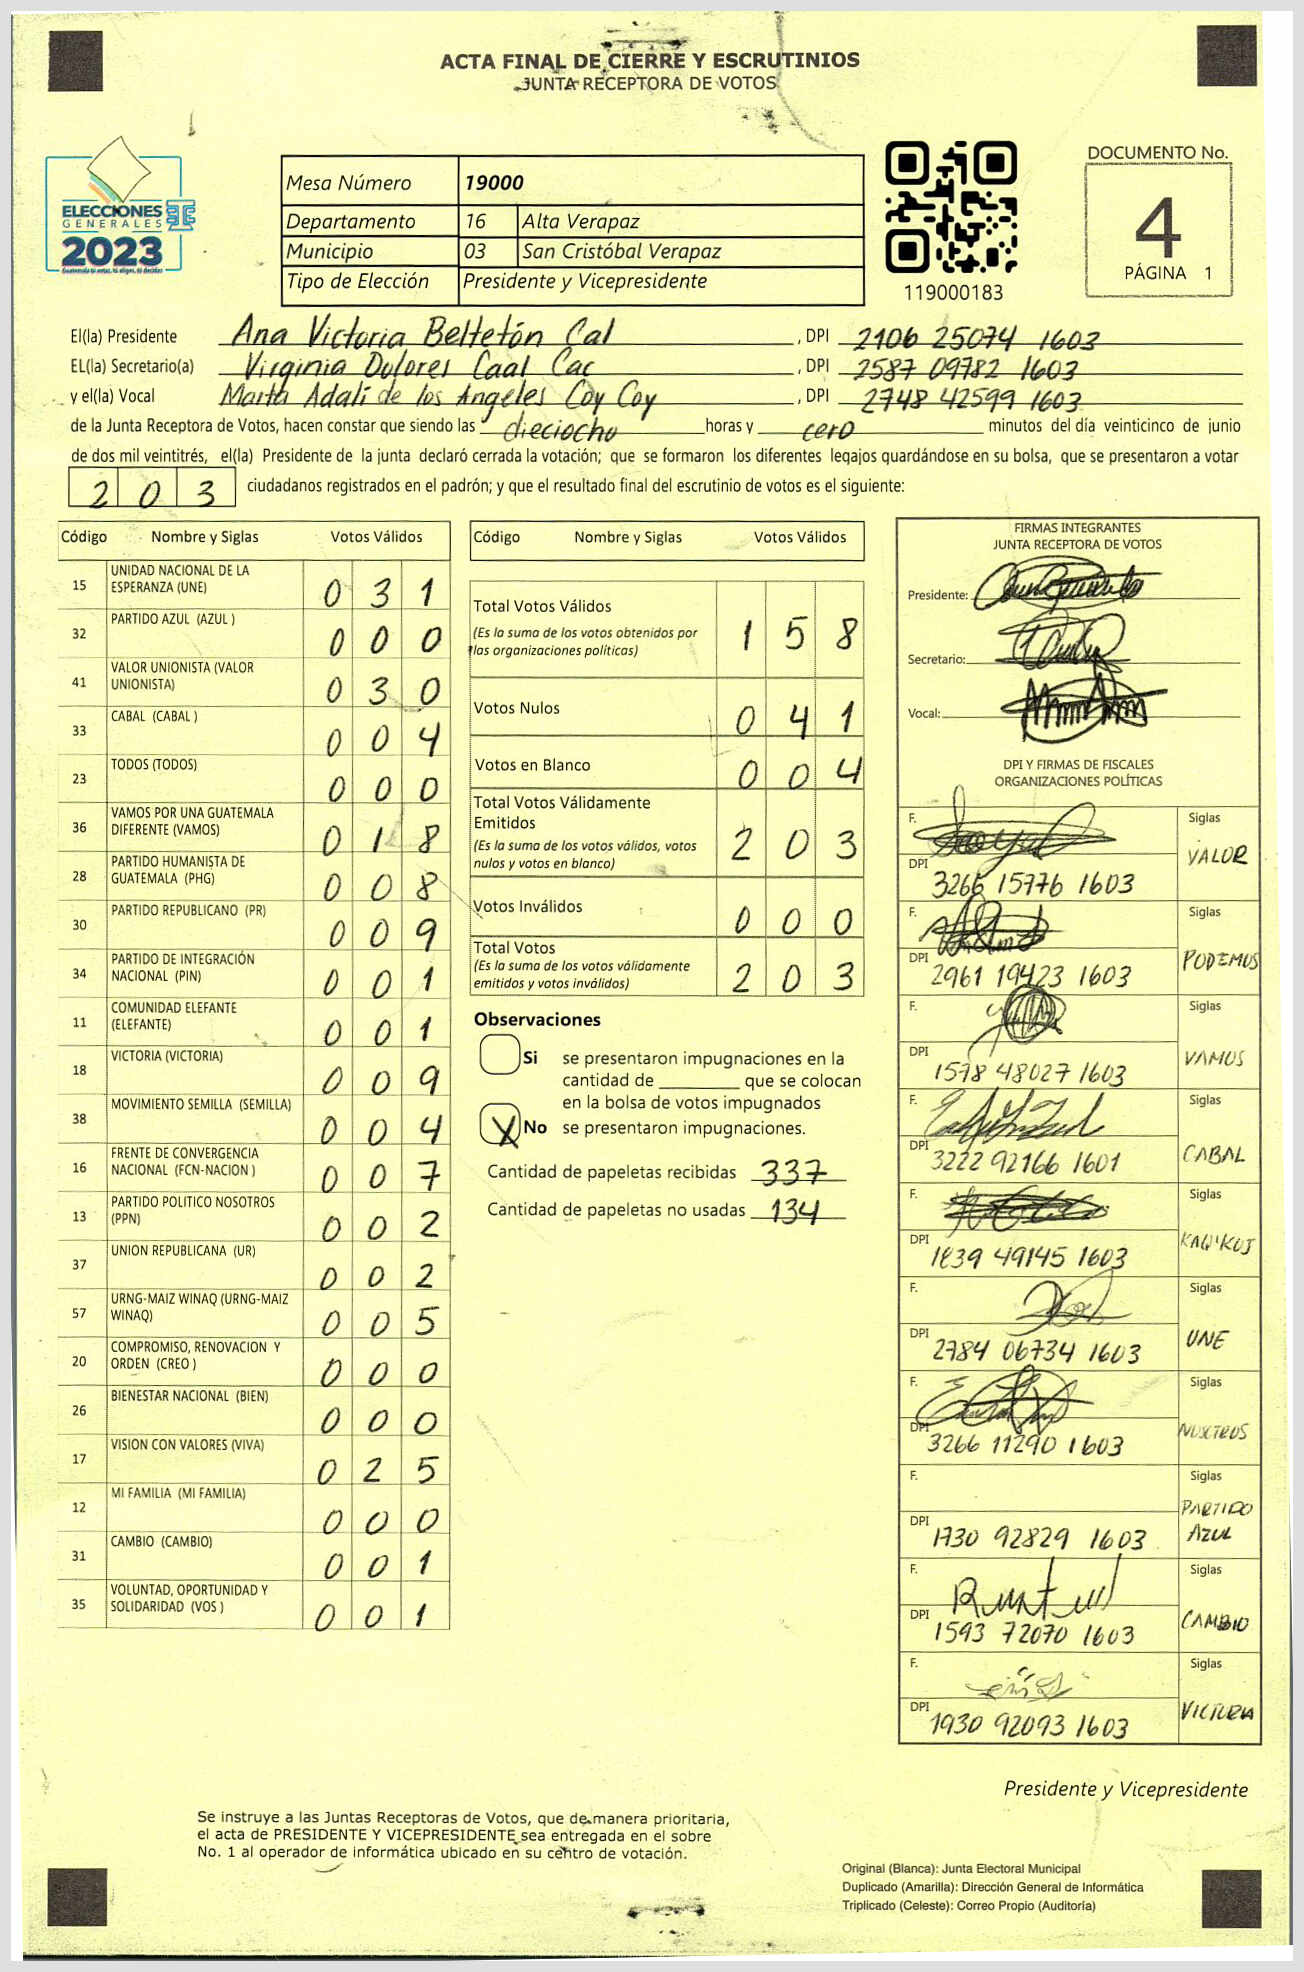 ACTA FINAL DE CIERRE Y ESCRUTINIOS
JUNTA RECEPTORA DE VOTOS
ELECCIONES
GENERALES
2023
Mesa Número 19000
Departamento 16 Alta Verapaz
Municipio 03 San Cristóbal Verapaz
Tipo de Elección Presidente y Vicepresidente
119000183
DOCUMENTO No.
4
PÁGINA 1
El(la) Presidente Ana Victoria Beltetón Cal , DPI 2106 25074 1603
EL(la) Secretario(a) Virginia Dolores Caal Cac , DPI 2587 09782 1603
y el(la) Vocal Marta Adali de los Angeles Coy Coy , DPI 2748 42599 1603
de la Junta Receptora de Votos, hacen constar que siendo las dieciocho horas y cero minutos del día veinticinco de junio
de dos mil veintitrés, el(la) Presidente de la junta declaró cerrada la votación; que se formaron los diferentes legajos guardándose en su bolsa, que se presentaron a votar
2 0 3 ciudadanos registrados en el padrón; y que el resultado final del escrutinio de votos es el siguiente:
Código Nombre y Siglas Votos Válidos
15 UNIDAD NACIONAL DE LA
ESPERANZA (UNE) 0 3 1
32 PARTIDO AZUL (AZUL ) 0 0 0
41 VALOR UNIONISTA (VALOR
UNIONISTA) 0 3 0
33 CABAL (CABAL ) 0 0 4
23 TODOS (TODOS) 0 0 0
36 VAMOS POR UNA GUATEMALA
DIFERENTE (VAMOS) 0 1 8
28 PARTIDO HUMANISTA DE
GUATEMALA (PHG) 0 0 8
30 PARTIDO REPUBLICANO (PR) 0 0 9
34 PARTIDO DE INTEGRACIÓN
NACIONAL (PIN) 0 0 1
11 COMUNIDAD ELEFANTE
(ELEFANTE) 0 0 1
18 VICTORIA (VICTORIA) 0 0 9
38 MOVIMIENTO SEMILLA (SEMILLA) 0 0 4
16 FRENTE DE CONVERGENCIA
NACIONAL (FCN-NACION ) 0 0 7
13 PARTIDO POLITICO NOSOTROS
(PPN) 0 0 2
37 UNION REPUBLICANA (UR) 0 0 2
57 URNG-MAIZ WINAQ (URNG-MAIZ
WINAQ) 0 0 5
20 COMPROMISO, RENOVACION Y
ORDEN (CREO ) 0 0 0
26 BIENESTAR NACIONAL (BIEN) 0 0 0
17 VISION CON VALORES (VIVA) 0 2 5
12 MI FAMILIA (MI FAMILIA) 0 0 0
31 CAMBIO (CAMBIO) 0 0 1
35 VOLUNTAD, OPORTUNIDAD Y
SOLIDARIDAD (VOS ) 0 0 1
Código Nombre y Siglas Votos Válidos
Total Votos Válidos
(Es la suma de los votos obtenidos por
las organizaciones políticas) 1 5 8
Votos Nulos 0 4 1
Votos en Blanco 0 0 4
Total Votos Válidamente
Emitidos
(Es la suma de los votos válidos, votos
nulos y votos en blanco) 2 0 3
Votos Inválidos 0 0 0
Total Votos
(Es la suma de los votos válidamente
emitidos y votos inválidos) 2 0 3
Observaciones
Si se presentaron impugnaciones en la
cantidad de ________ que se colocan
en la bolsa de votos impugnados
X No se presentaron impugnaciones.
Cantidad de papeletas recibidas 337
Cantidad de papeletas no usadas 134
FIRMAS INTEGRANTES
JUNTA RECEPTORA DE VOTOS
Presidente:
Secretario:
Vocal:
DPI Y FIRMAS DE FISCALES
ORGANIZACIONES POLÍTICAS
F. Siglas
VALOR
DPI 3266 15776 1603
F. Siglas
PODEMOS
DPI 2961 19423 1603
F. Siglas
VAMOS
DPI 1578 48027 1603
F. Siglas
CABAL
DPI 3222 92166 1601
F. Siglas
DPI 1839 49145 1603
F. Siglas
UNE
DPI 2784 06734 1603
F. Siglas
NOSOTROS
DPI 3266 11290 1603
F. Siglas
PARTIDO
AZUL
DPI 1730 92829 1603
F. Siglas
CAMBIO
DPI 1593 72070 1603
F. Siglas
VICTORIA
DPI 1930 92093 1603
Presidente y Vicepresidente
Se instruye a las Juntas Receptoras de Votos, que de manera prioritaria,
el acta de PRESIDENTE Y VICEPRESIDENTE sea entregada en el sobre
No. 1 al operador de informática ubicado en su centro de votación.
Original (Blanca): Junta Electoral Municipal
Duplicado (Amarilla): Dirección General de Informática
Triplicado (Celeste): Correo Propio (Auditoría)